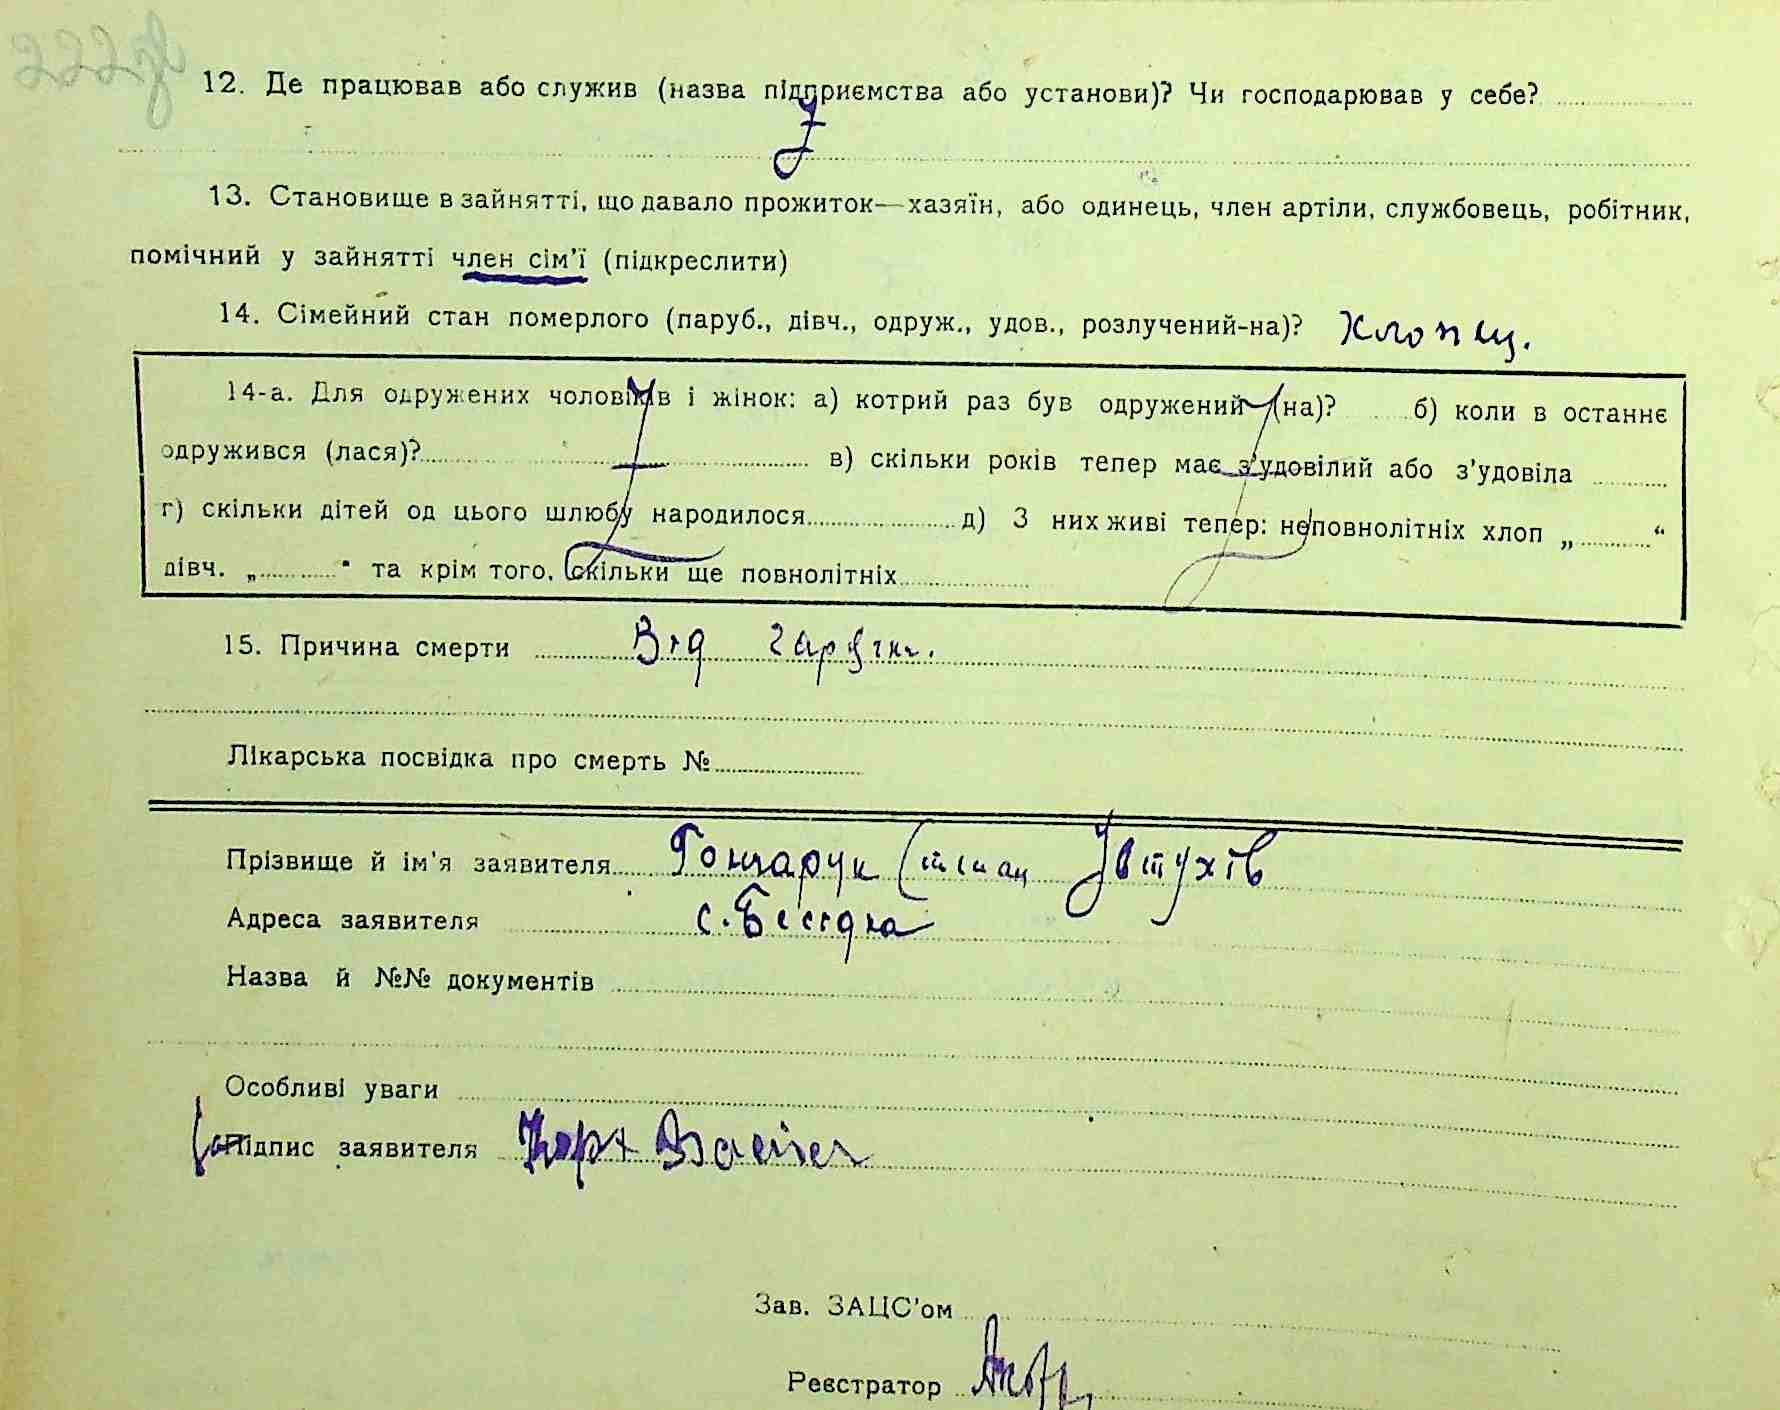 12. Де працював або служив (назва підприємства або установи)? Чи господарював у себе?
13. Становище в зайнятті, що давало прожиток—хазяїн, або одинець, член артіли, службовець, робітник,
помічний у зайнятті член сім'ї (підкреслити)
14. Сімейний стан померлого (паруб., дівч., одруж., удов., розлучений-на)? Хлопец.
14-а. Для одружених чоловіків і жінок: а) котрий раз був одружений (на)? б) коли в останнє
одружився (лася)? в) скільки років тепер має з'удовілий або з'удовіла
г) скільки дітей од цього шлюбу народилося д) З них живі тепер: неповнолітніх хлоп „ “
дівч. „ “ та крім того, скільки ще повнолітніх
15. Причина смерти Від гарячки.
Лікарська посвідка про смерть №
Прізвище й ім'я заявителя Гончарук Степан Явтухів
Адреса заявителя с. Бесідка
Назва й №№ документів
Особливі уваги
Підпис заявителя
Зав. ЗАЦС'ом
Реєстратор